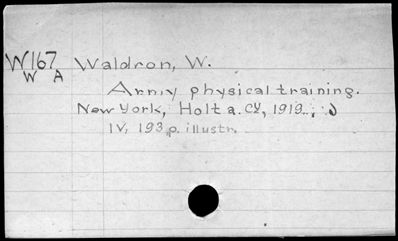 W167 Waldron, W.
W A
Army physical training.
New York, Holt a. Cy, 1919.
IV, 193 p. illustr.